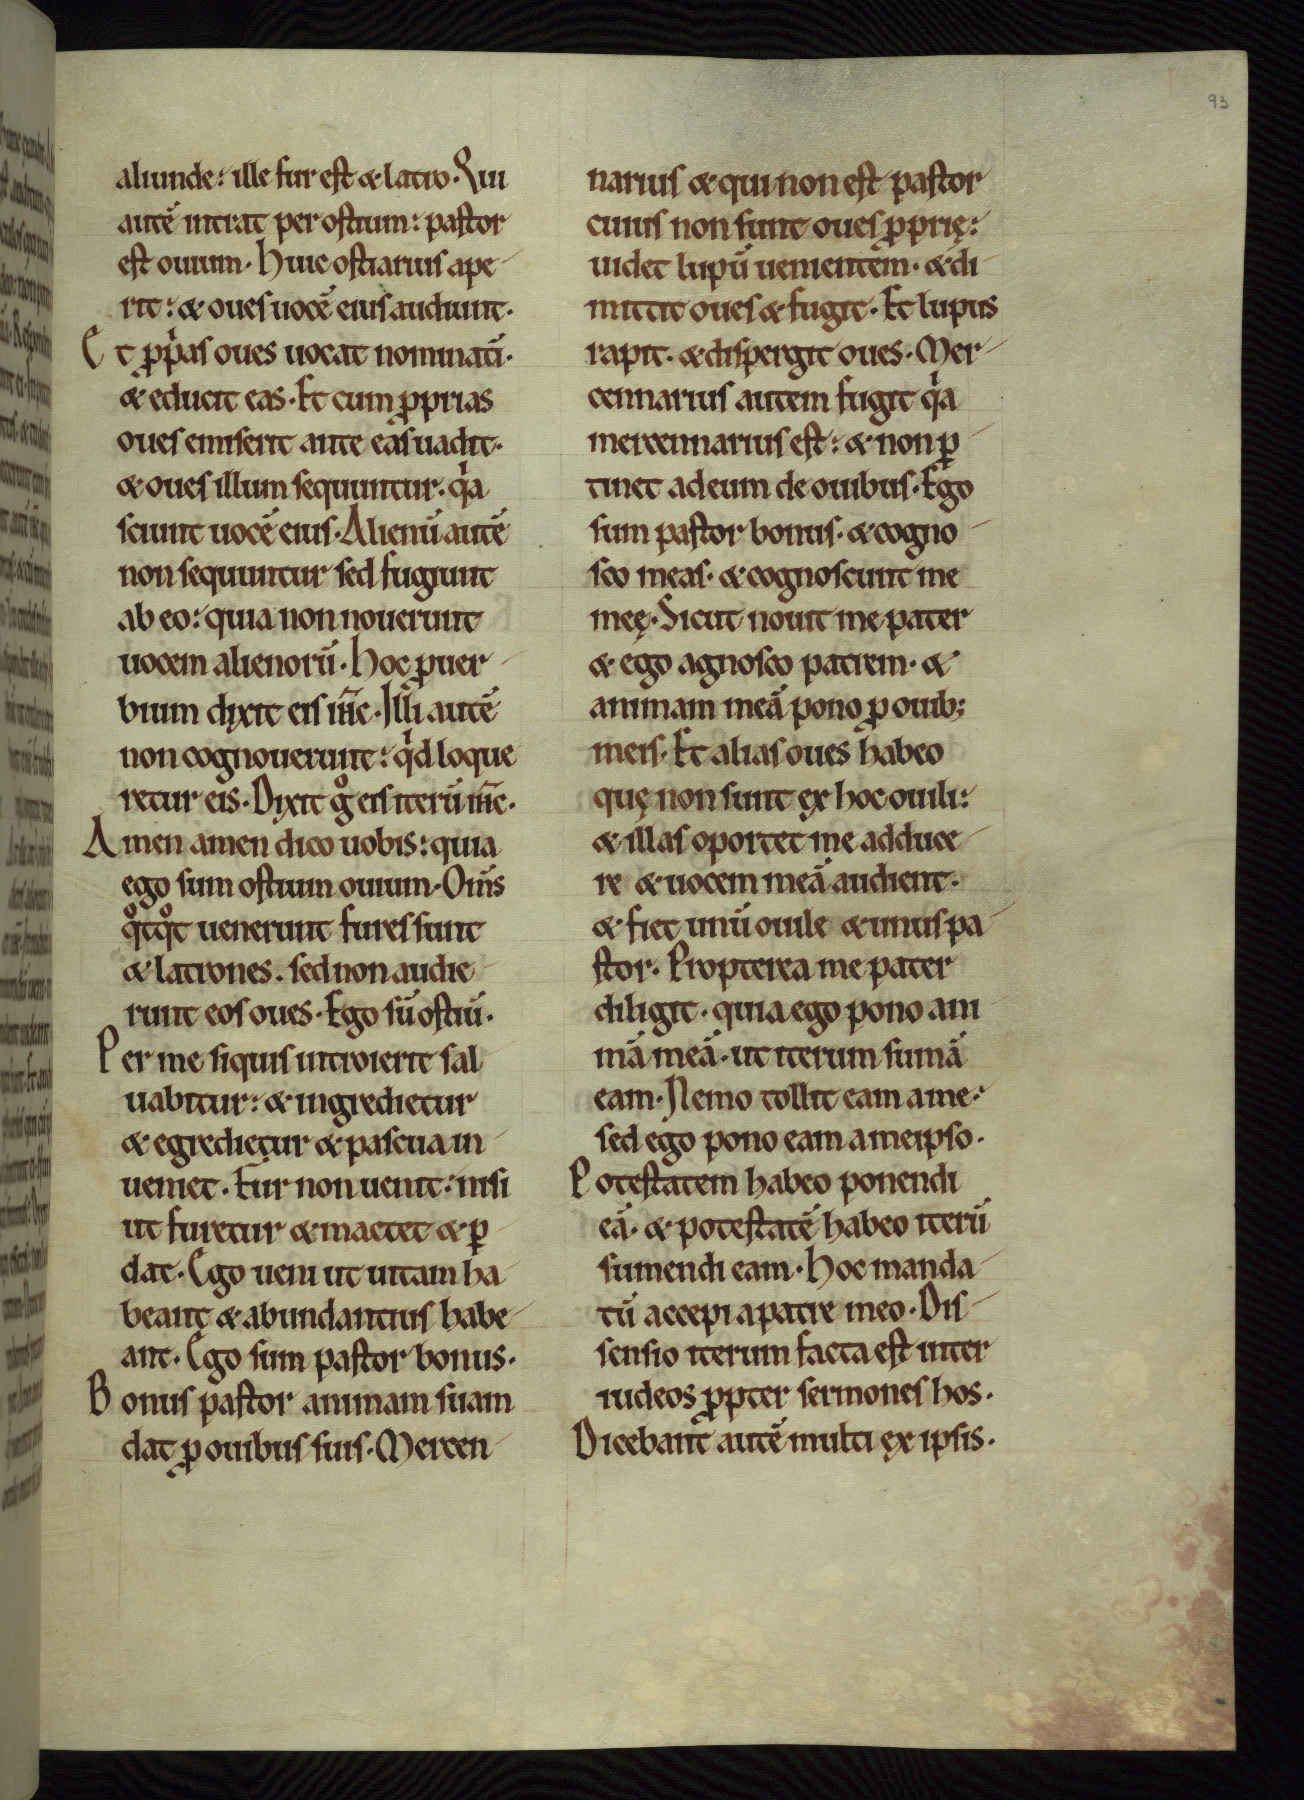 93
aliunde: ille fur est & latro. Qui
autē intrat per ostium: pastor
est ouium. Huic ostiarius ape-
rit: & oues uocē eius audiunt.
Et ꝓpͥas oues uocat nominatī.
& educit eas. Et cum ꝓprias
oues emiserit ante eas uadit.
& oues illum sequuntur. qͥa
sciunt uocē eius. Alienū autē
non sequuntur sed fugiunt
ab eo: quia non nouerunt
uocem alienorū. Hoc ꝓuer-
bium dixit eis ih̄c. Illi autē
non cognouerunt: qͥd loque
retur eis. Dixit gͦ eis iterū ih̄c.
Amen amen dico uobis: quia
ego sum ostium ouium. Om̄s
qͦtqͦt uenerunt fures sunt
& latrones. sed non audie-
runt eos oues. Ego sū ostiū.
Per me siquis introierit sal-
uabitur: & ingredietur
& egredietur & pascua in-
ueniet. Fur non uenit: nisi
ut furetur & mactet & ꝑ-
dat. Ego ueni ut uitam ha-
beant & abundantius habe-
ant. Ego sum pastor bonus.
Bonus pastor animam suam
dat ꝓ ouibus suis. Mercen-
narius & qui non est pastor
cuius non sunt oues ꝓprię:
uidet lupū uenientem. & di
mittit oues & fugit. Et lupus
rapit. & dispergit oues. Mer-
cennarius autem fugit qͥa
mercennarius est: & non ꝑ-
tinet ad eum de ouibus. Ego
sum pastor bonus. & cogno-
sco meas. & cognoscunt me
meę. Sicut nouit me pater
& ego agnosco patrem. &
animam meā pono ꝓ ouib;
meis. Et alias oues habeo
quę non sunt ex hoc ouili:
& illas oportet me adduce-
re & uocem meā audient.
& fiet unū ouile & unus pa-
stor. Propterea me pater
diligit. quia ego pono ani
mā meā. ut iterum sumā
eam. Nemo tollit eam a me:
sed ego pono eam a meipso.
Potestatem habeo ponendi
eā. & potestatē habeo iterū
sumendi eam. Hoc manda-
tū accepi a patre meo. Dis-
sensio iterum facta est inter
iudeos ꝓpter sermones hos.
Dicebant autē multi ex ipsis.